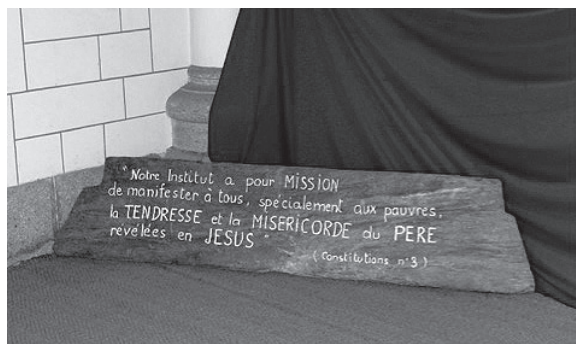 "Notre Institut a pour MISSION
de manifester à tous, spécialement aux pauvres,
la TENDRESSE et la MISERICORDE du PERE
revélées en JESUS"
(Constitutions n°3)